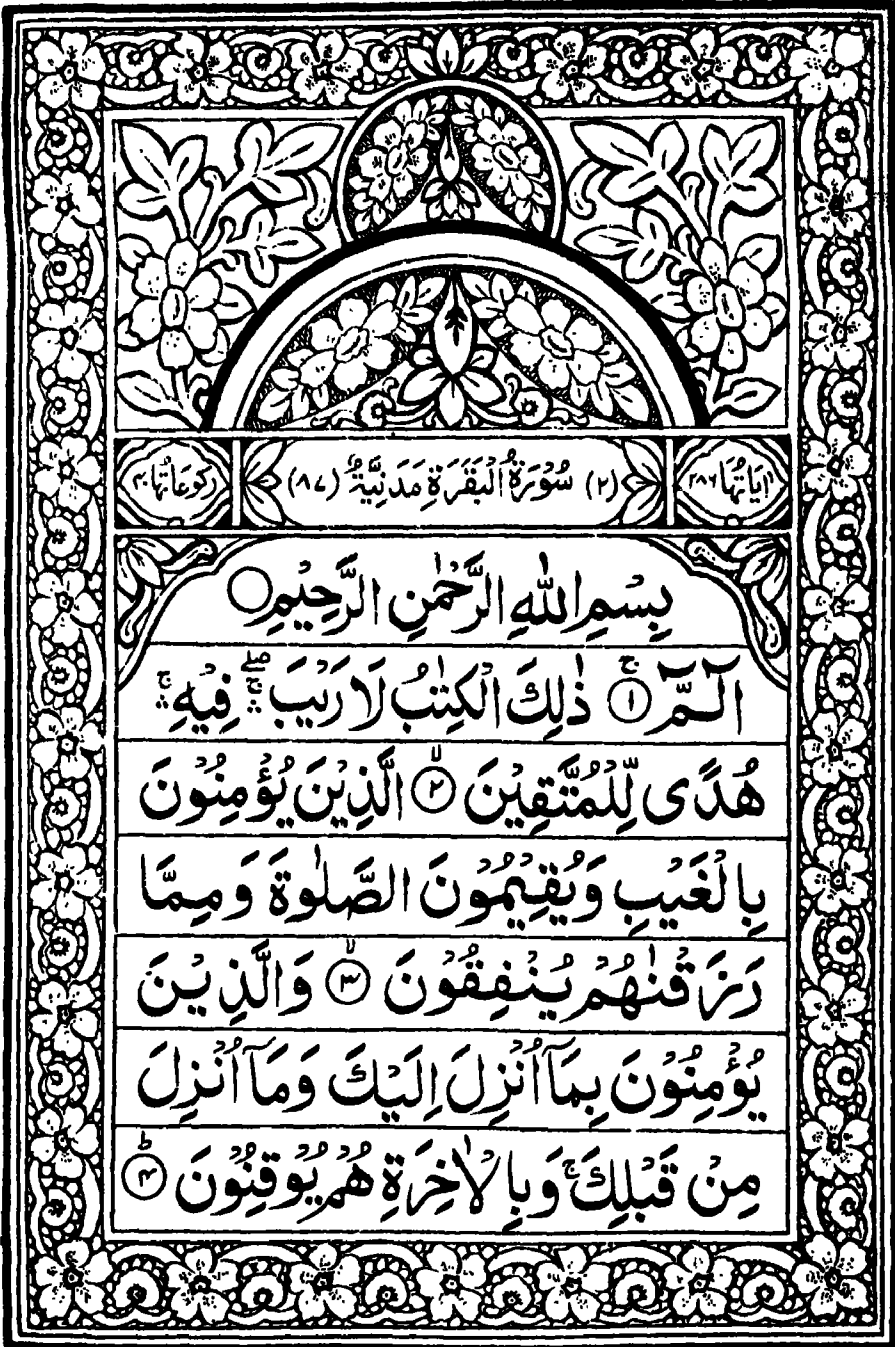 اٰيَاتُهَا ٢٨٦ (٢) سُوْرَةُ الْبَقَرَةِ مَدَنِيَّةٌ (٨٧) رُكُوْعَاتُهَا ٤٠
بِسْمِ اللّٰهِ الرَّحْمٰنِ الرَّحِيْمِ ○
الٓـمّٓ ۚ ﴿١﴾ ذٰلِكَ الْكِتٰبُ لَا رَيْبَ ۛۖۚ فِيْهِ ۛۚ
هُدًى لِّلْمُتَّقِيْنَ ۙ ﴿٢﴾ الَّذِيْنَ يُؤْمِنُوْنَ
بِالْغَيْبِ وَيُقِيْمُوْنَ الصَّلٰوةَ وَمِمَّا
رَزَقْنٰهُمْ يُنْفِقُوْنَ ۙ ﴿٣﴾ وَالَّذِيْنَ
يُؤْمِنُوْنَ بِمَآ اُنْزِلَ اِلَيْكَ وَمَآ اُنْزِلَ
مِنْ قَبْلِكَ ۚ وَبِالْاٰخِرَةِ هُمْ يُوْقِنُوْنَ ؕ ﴿٤﴾